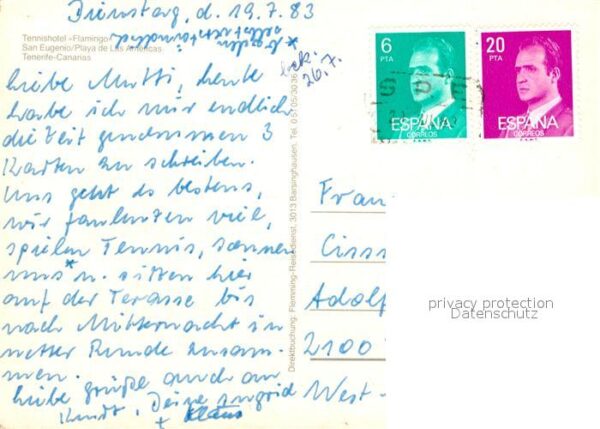 Dienstag, d. 19.7.83
Tennishotel »Flamingo«
San Eugenio/Playa de Las Americas
Tenerife-Canarias
bek.
26.7.
Liebe Mutti, heute
habe ich mir endlich
die Zeit genommen 3
Karten zu schreiben.
Uns geht es bestens,
wir faulenzen viel,
spielen Tennis, sonnen
uns* u. sitzen hier
auf der Terasse bis
nach Mitternacht in
netter Runde zusam-
men.
Liebe Grüße auch an
Kurdt. Deine Ingrid
+ Klaus
Direktbuchung: Flemming-Reisedienst, 3013 Barsinghausen, Tel.
6
PTA
ESPAÑA
CORREOS
20
PTA
ESPAÑA
CORREOS
Frau
Ciss
Adolf
2100
West-
privacy protection
Datenschutz